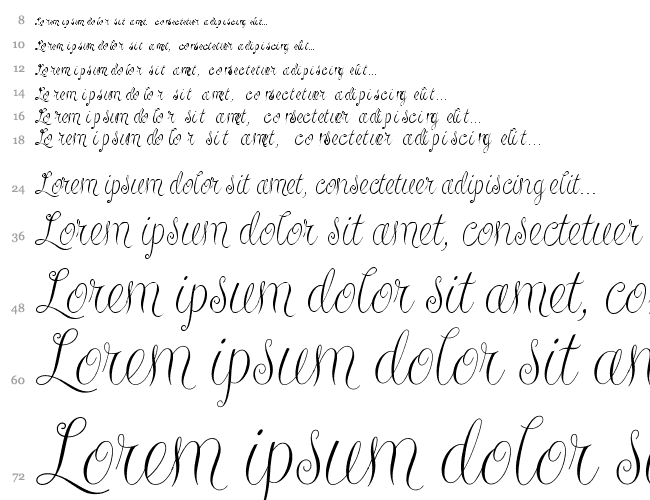 8 Lorem ipsum dolor sit amet, consectetuer adipiscing elit...
10 Lorem ipsum dolor sit amet, consectetuer adipiscing elit...
12 Lorem ipsum dolor sit amet, consectetuer adipiscing elit...
14 Lorem ipsum dolor sit amet, consectetuer adipiscing elit...
16 Lorem ipsum dolor sit amet, consectetuer adipiscing elit...
18 Lorem ipsum dolor sit amet, consectetuer adipiscing elit...
24 Lorem ipsum dolor sit amet, consectetuer adipiscing elit...
36 Lorem ipsum dolor sit amet, consectetuer
48 Lorem ipsum dolor sit amet, co
60 Lorem ipsum dolor sit am
72 Lorem ipsum dolor si